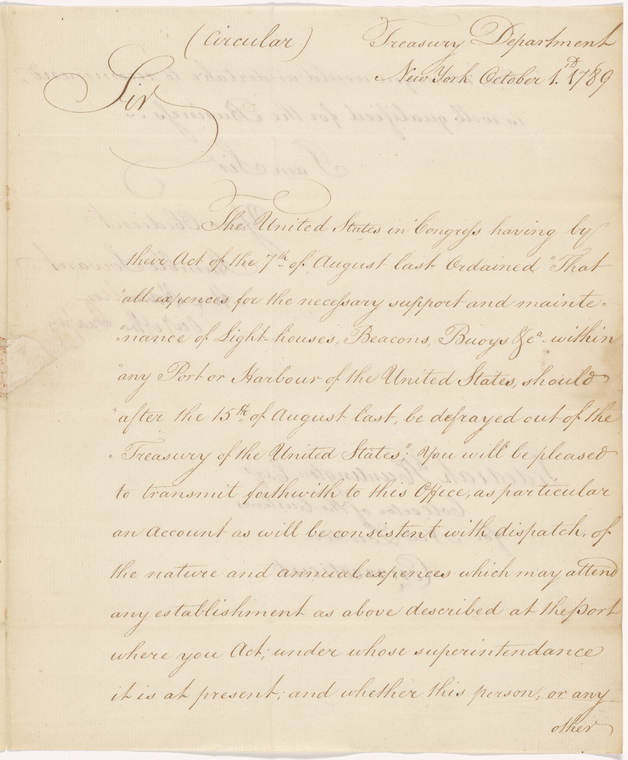 (Circular) Treasury Department
New York October 1.st 1789
Sir
The United States in Congress having by
their Act of the 7th of August last Ordained "That
"all expences for the necessary support and mainte-
"nance of Light-houses, Beacons, Buoys &ca within
"any Port or Harbour of the United States, should
"after the 15th of August last, be defrayed out of the
"Treasury of the United States"; You will be pleased
to transmit forthwith to this Office, as particular
an account as will be consistent with dispatch, of
the nature and annual expences which may attend
any establishment as above described at the port
where you Act; under whose superintendance
it is at present; and whether this person, or any
other